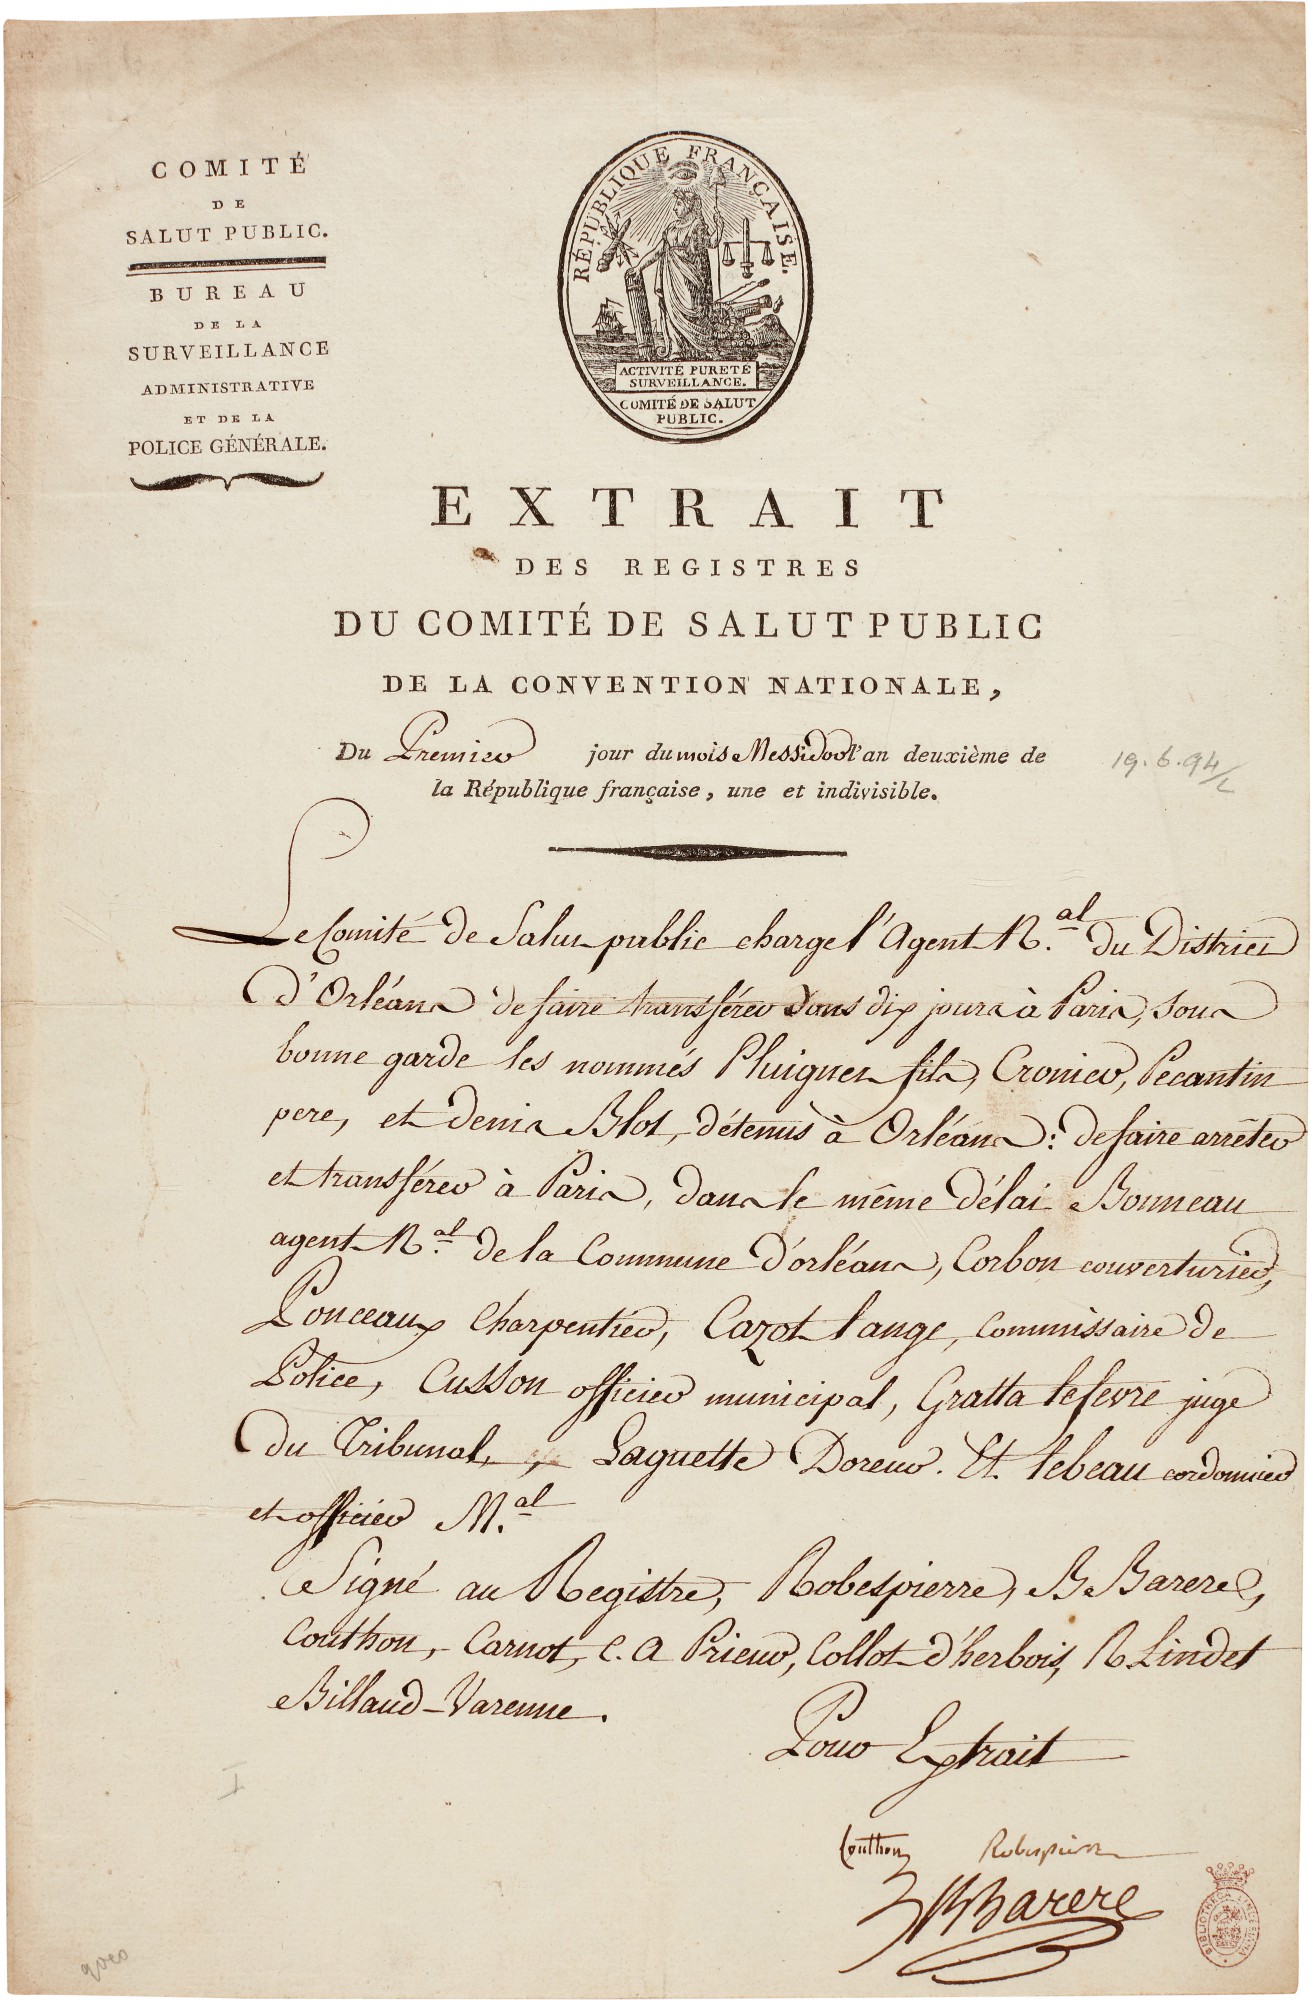 COMITÉ
DE
SALUT PUBLIC.
BUREAU
DE LA
SURVEILLANCE
ADMINISTRATIVE
ET DE LA
POLICE GÉNÉRALE.
RÉPUBLIQUE FRANÇAISE.
ACTIVITÉ PURETÉ
SURVEILLANCE.
COMITÉ DE SALUT
PUBLIC.
EXTRAIT
DES REGISTRES
DU COMITÉ DE SALUT PUBLIC
DE LA CONVENTION NATIONALE,
Du Premier jour du mois Messidor l'an deuxième de
19.6.94
la République française, une et indivisible.
Le Comité de Salut public charge l'Agent N.al du District
d'Orléans de faire transférer dans dix jours à Paris, sous
bonne garde les nommés Pluignet fils, Cronier, Pecantin
pere, et denis Blot, détenus à Orléans: de faire arrêter
et transférer à Paris, dans le même délai Bonneau
agent N.al de la Commune d'orléans, Corbon couverturier,
Ponceaux Charpentier, Cazot l'ange, Commissaire de
Police, Cusson officier municipal, Gratta lefevre juge
du Tribunal, Laguette Doreur. Et lebeau cordonnier
et officier M.al
Signé au Registre, Robespierre, B Barere,
Couthon, Carnot, C. A Prieur, Collot d'herbois, R Lindet
Billaud-Varenne.
Pour Extrait
Couthon Robespierre
B Barere
BIBLIOTHECA LINDESIANA
I